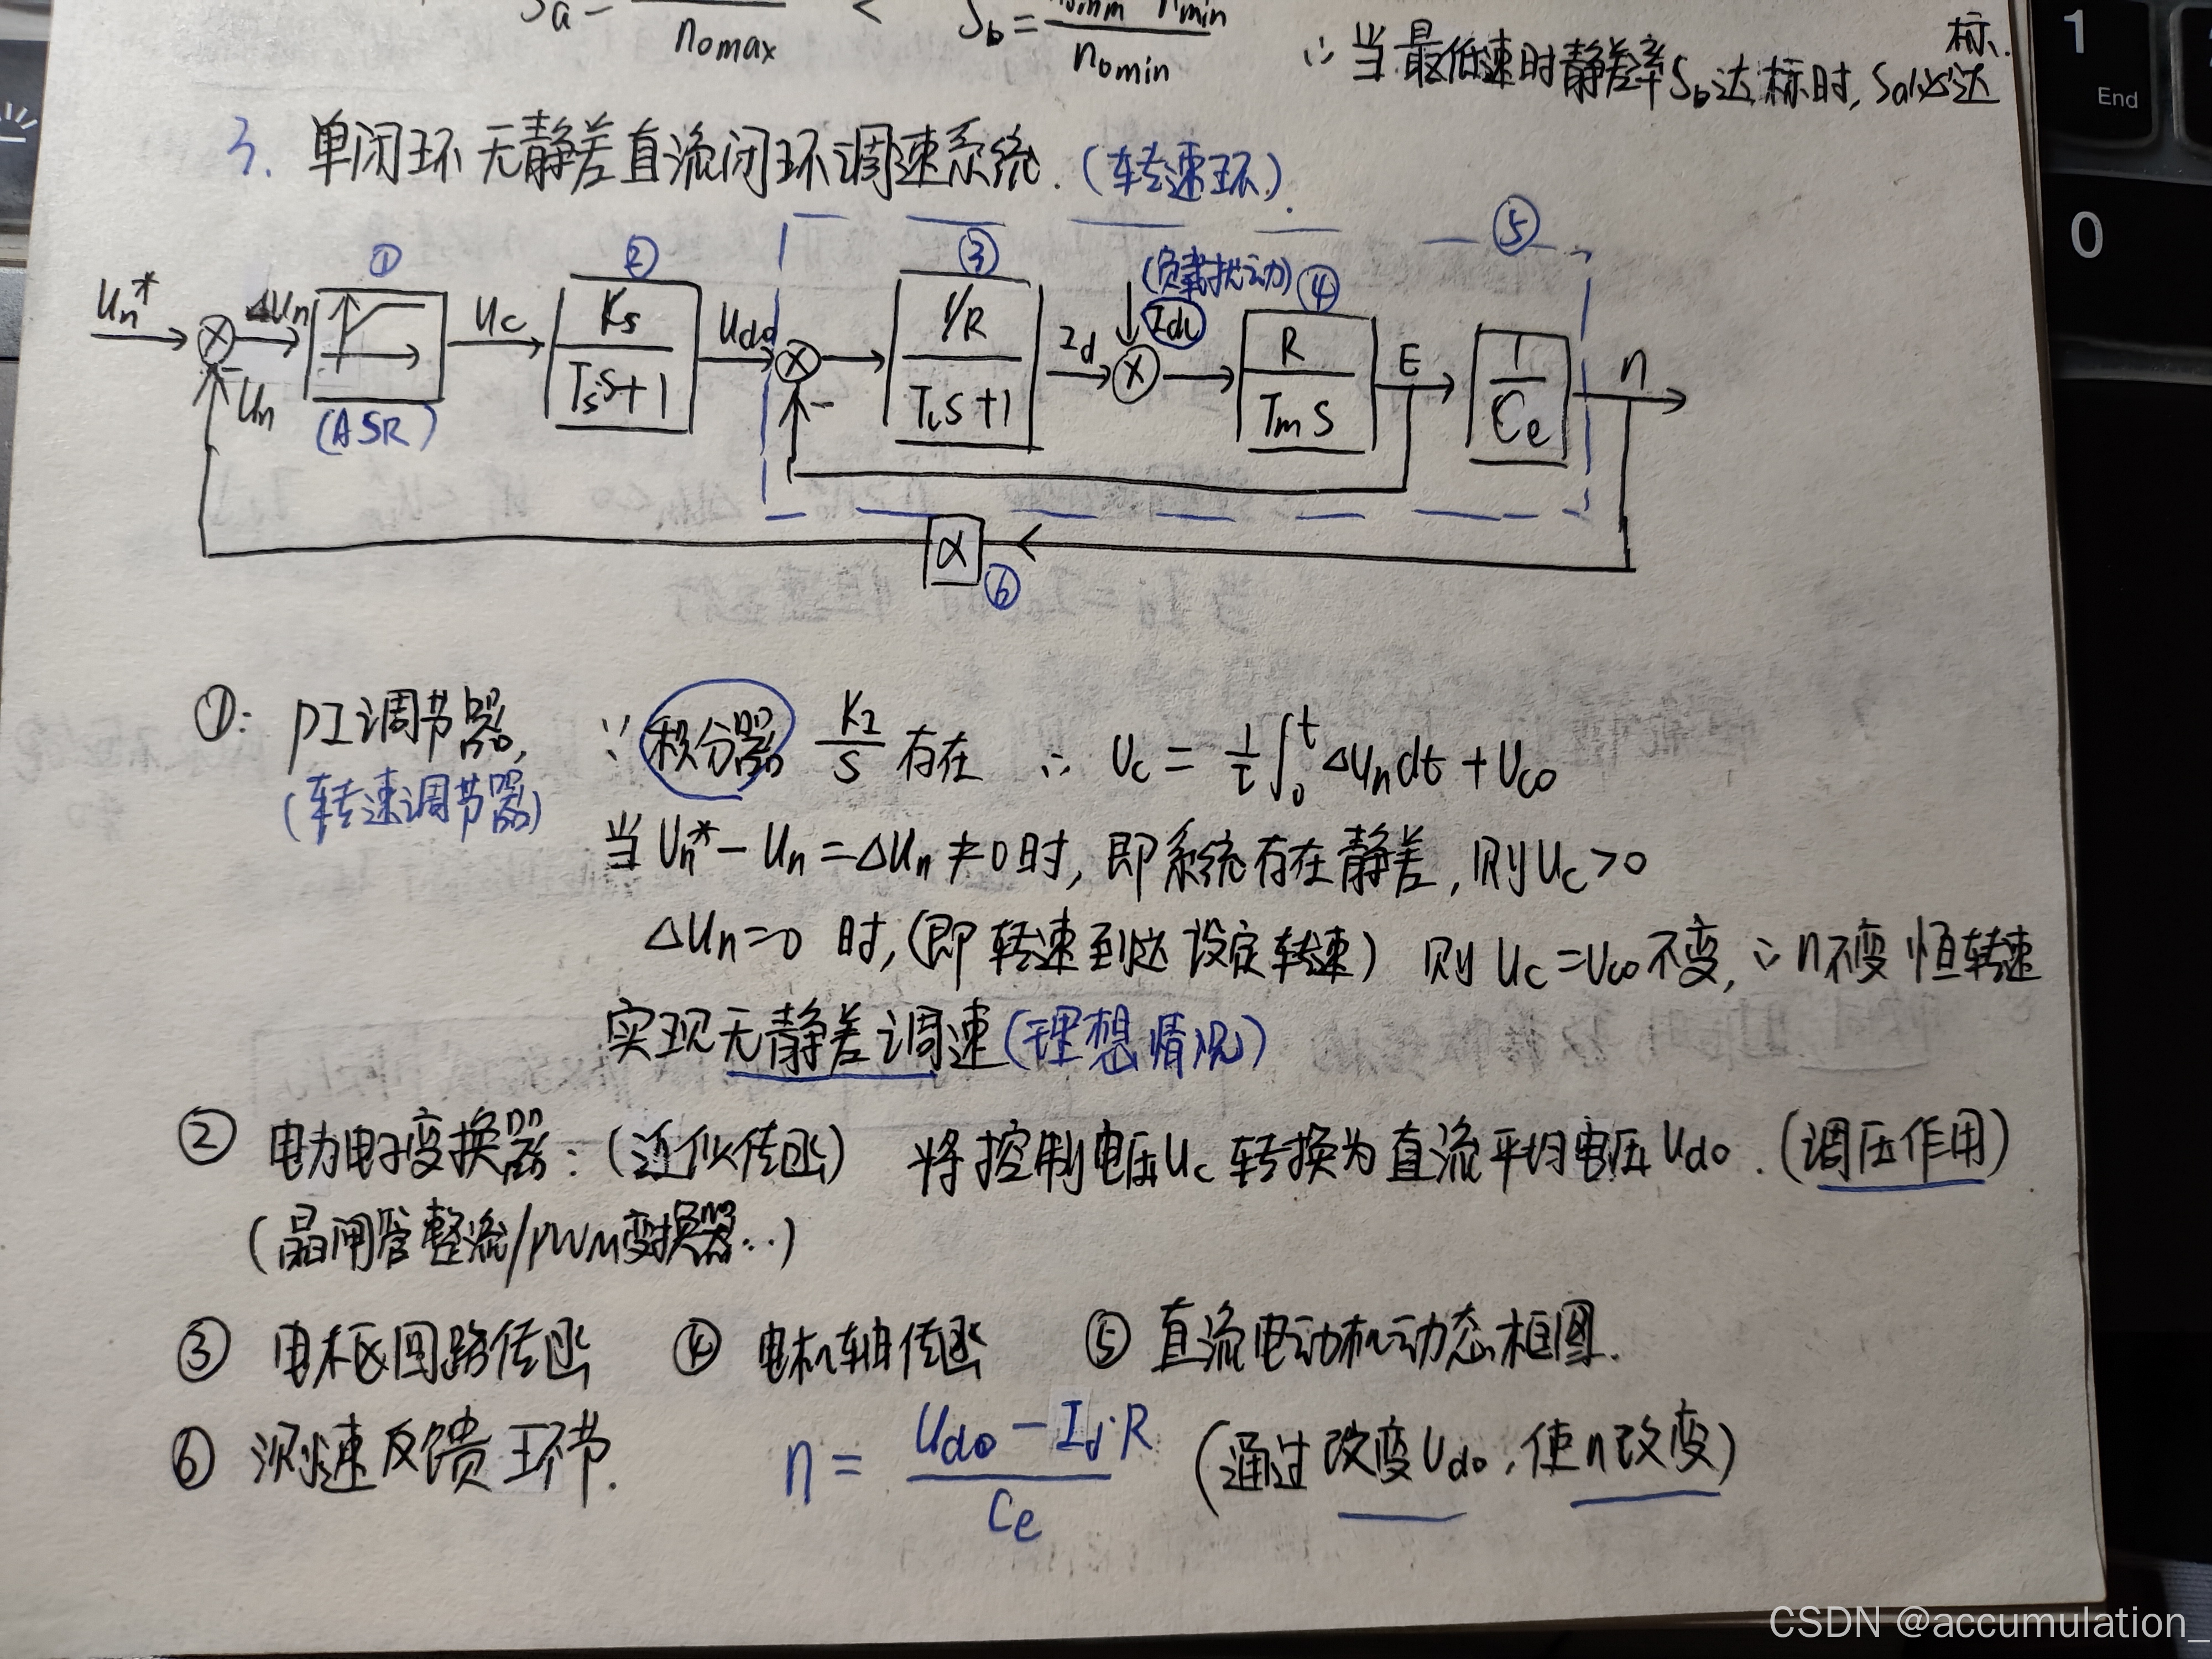 Sa = / n0max < Sb = nmin / n0min
∵ 当最低速时静差率Sb达标时, Sa必达标.
3. 单闭环无静差直流闭环调速系统. (转速环).
① ② ③ (负载扰动) ④ ⑤
Un* ΔUn Uc Ks / Tss+1 Ud0 1/R / Tls+1 Id IdL R / Tms E 1 / Ce n
- Un (ASR) -
α ⑥
①: PI调节器, ∵ 积分器 KI/S 存在 ∴ Uc = 1/τ ∫0^t ΔUndt + Uc0
(转速调节器)
当 Un* - Un = ΔUn ≠ 0 时, 即系统存在静差, 则Uc > 0
ΔUn = 0 时, (即转速到达设定转速) 则 Uc = Uc0 不变, ∴ n不变 恒转速
实现无静差调速(理想情况)
② 电力电子变换器: (近似传函) 将控制电压Uc转换为直流平均电压Ud0. (调压作用)
(晶闸管整流/PWM变换器...)
③ 电枢回路传函 ④ 电机轴传函 ⑤ 直流电动机动态框图.
⑥ 测速反馈环节. n = Ud0 - Id·R / Ce (通过改变Ud0, 使n改变)
1
End
0
CSDN @accumulation_